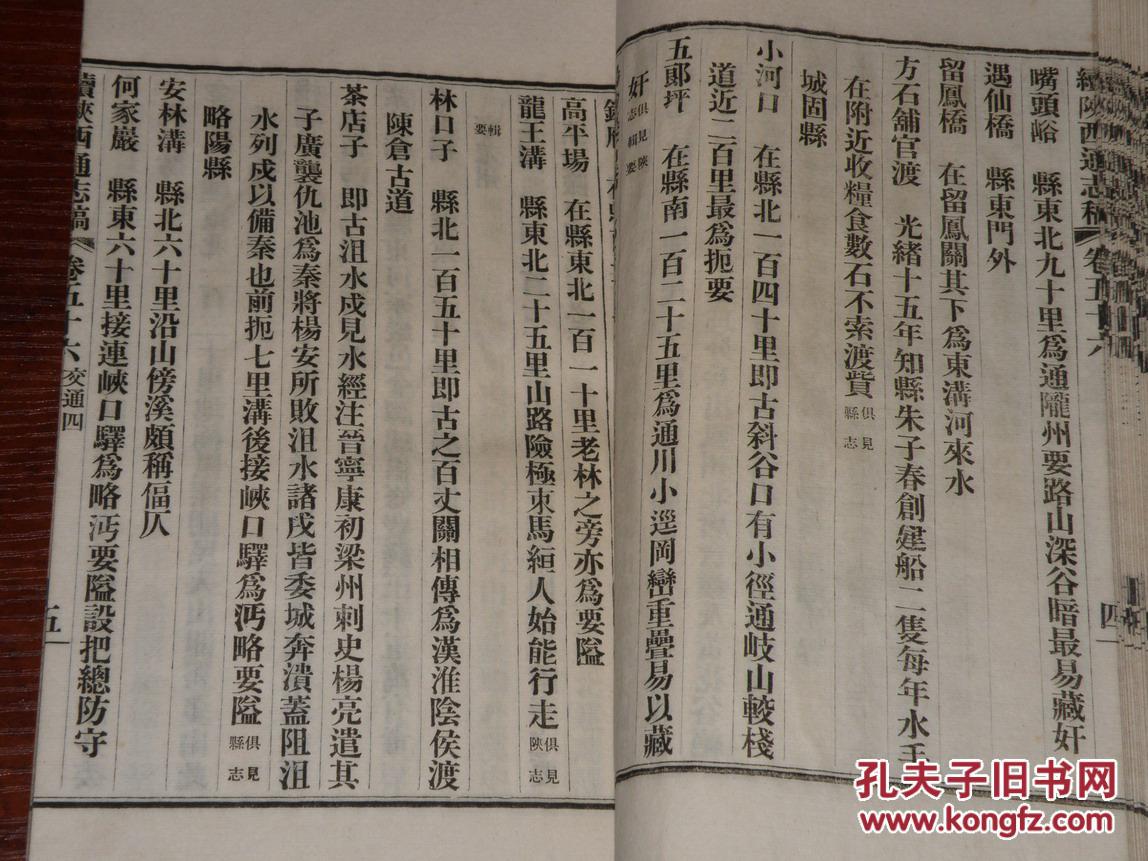 續陝西通志稿 卷五十六 四
嘴頭峪 縣東北九十里爲通隴州要路山深谷暗最易藏奸
遇仙橋 縣東門外
留鳳橋 在留鳳關其下爲東溝河來水
方石舖官渡 光緒十五年知縣朱子春創建船二隻每年水手
在附近收糧食數石不索渡貲俱見縣志
城固縣
小河口 在縣北一百四十里即古斜谷口有小徑通岐山較棧
道近二百里最爲扼要
五郎坪 在縣南一百二十五里爲通川小逕岡巒重疊易以藏
奸俱見陝志輯要
高平場 在縣東北一百一十里老林之旁亦爲要隘
龍王溝 縣東北二十五里山路險極束馬絙人始能行走俱見陝志
輯要
林口子 縣北一百五十里即古之百丈關相傳爲漢淮陰侯渡
陳倉古道
茶店子 即古沮水戍見水經注晉寧康初梁州刺史楊亮遣其
子廣襲仇池爲秦將楊安所敗沮水諸戍皆委城奔潰蓋阻沮
水列戍以備秦也前扼七里溝後接峽口驛爲沔略要隘俱見縣志
略陽縣
安林溝 縣北六十里沿山傍溪頗稱偪仄
何家巖 縣東六十里接連峽口驛爲略沔要隘設把總防守
續陝西通志稿 卷五十六 交通四 五
孔夫子旧书网
www.kongfz.com